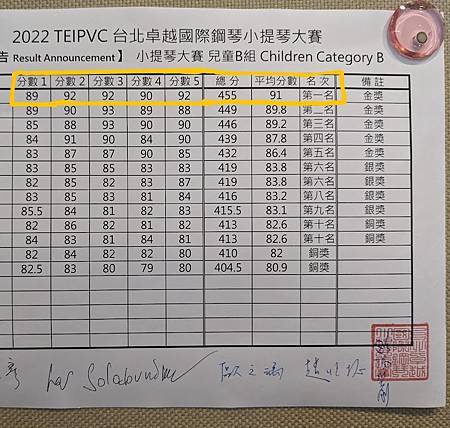 2022 TEIPVC 台北卓越國際鋼琴小提琴大賽
告 Result Announcement】 小提琴大賽 兒童B組 Children Category B
分數 1 分數 2 分數 3 分數 4 分數 5 總 分 平均分數 名 次 備 註
89 92 92 90 92 455 91 第一名 金獎
89 90 93 89 88 449 89.8 第二名 金獎
85 88 90 93 90 446 89.2 第三名 金獎
84 91 90 84 90 439 87.8 第四名 金獎
83 87 87 90 85 432 86.4 第五名 金獎
83 85 85 83 83 419 83.8 第六名 銀獎
82 85 82 83 87 419 83.8 第六名 銀獎
83 85 83 81 84 416 83.2 第八名 銀獎
85.5 84 81 82 83 415.5 83.1 第九名 銀獎
82 86 82 81 82 413 82.6 第十名 銅獎
84 83 81 84 81 413 82.6 第十名 銅獎
81 84 82 82 80 410 82 銅獎
82.5 83 80 79 80 404.5 80.9 銅獎